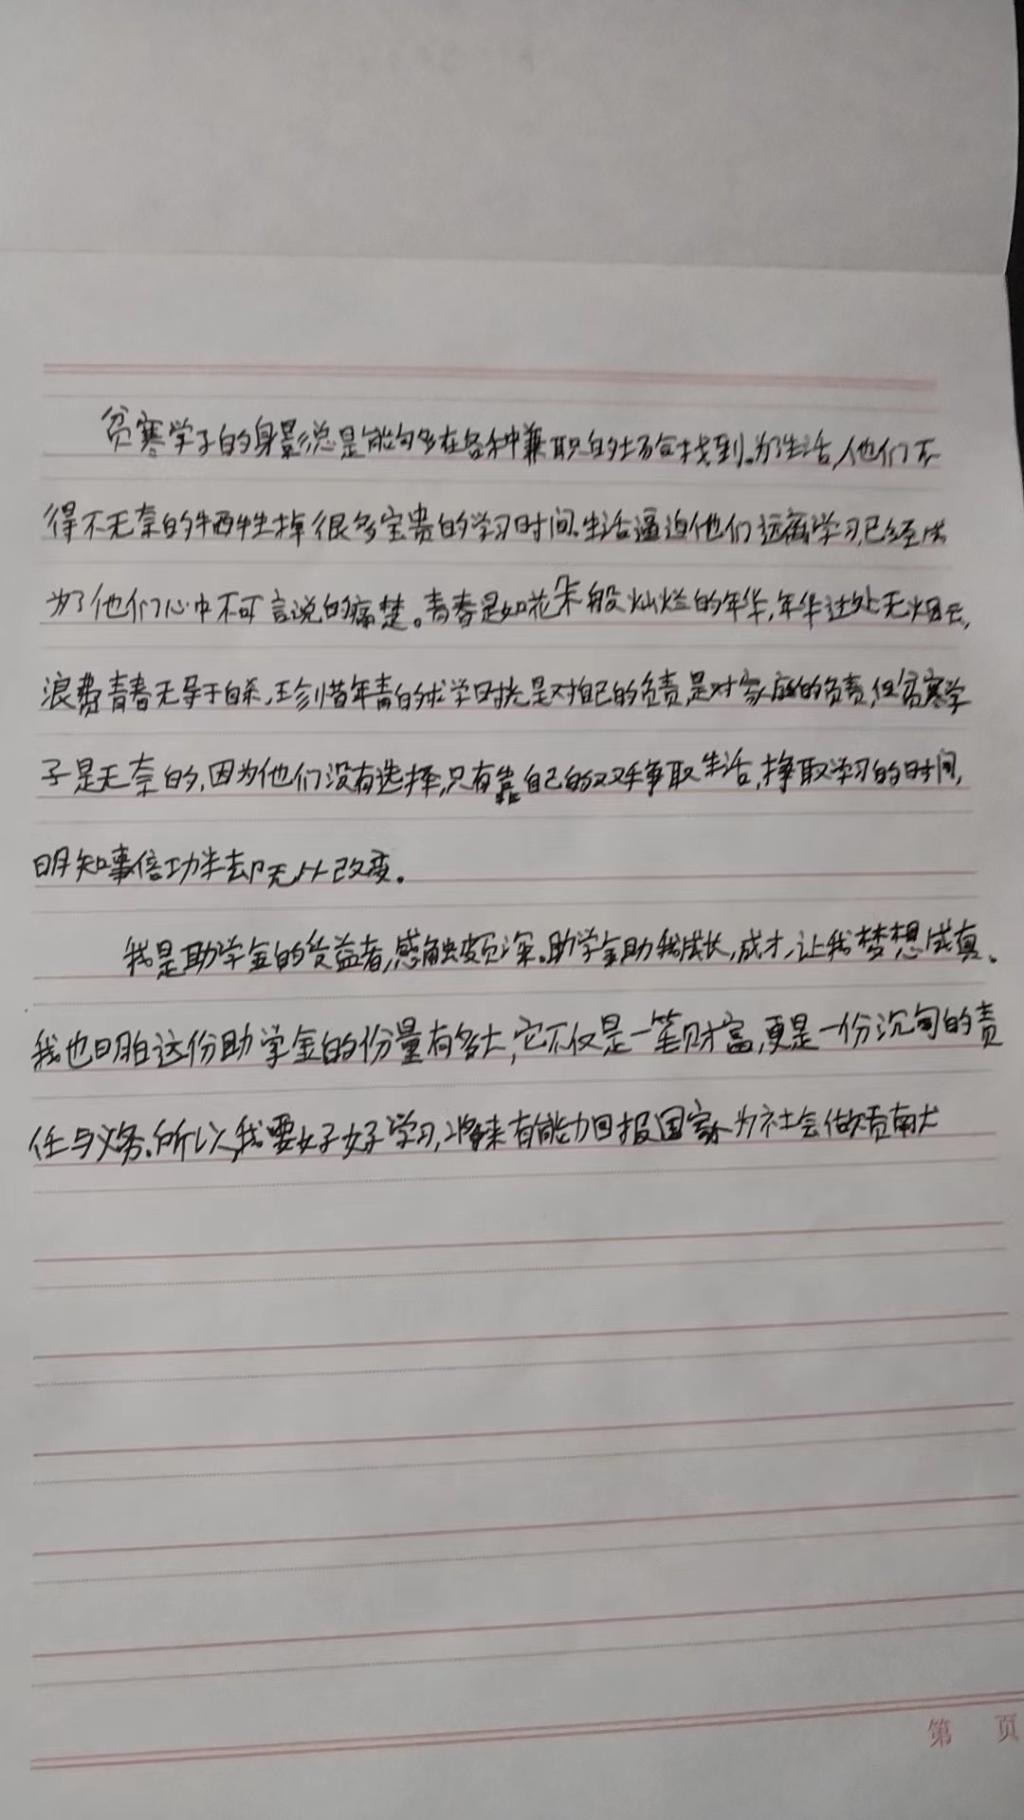 贫寒学子的身影总是能够在各种兼职的场合找到。为了生活,他们不
得不无奈的牺牲掉很多宝贵的学习时间。生活逼迫他们远离学习,已经成
为了他们心中不可言说的痛楚。青春是如花朵般灿烂的年华,年华过处无烟云,
浪费青春无异于自杀,珍惜年青的求学时光是对自己的负责,是对家庭的负责,但贫寒学
子是无奈的,因为他们没有选择,只有靠自己的双手争取生活,挣取学习的时间,
明知事倍功半却无从改变。
我是助学金的受益者,感触颇深。助学金助我成长,成才,让我梦想成真。
我也明白这份助学金的份量有多大,它不仅是一笔财富,更是一份沉甸的责
任与义务。所以,我要好好学习,将来有能力回报国家为社会做贡献
第 页